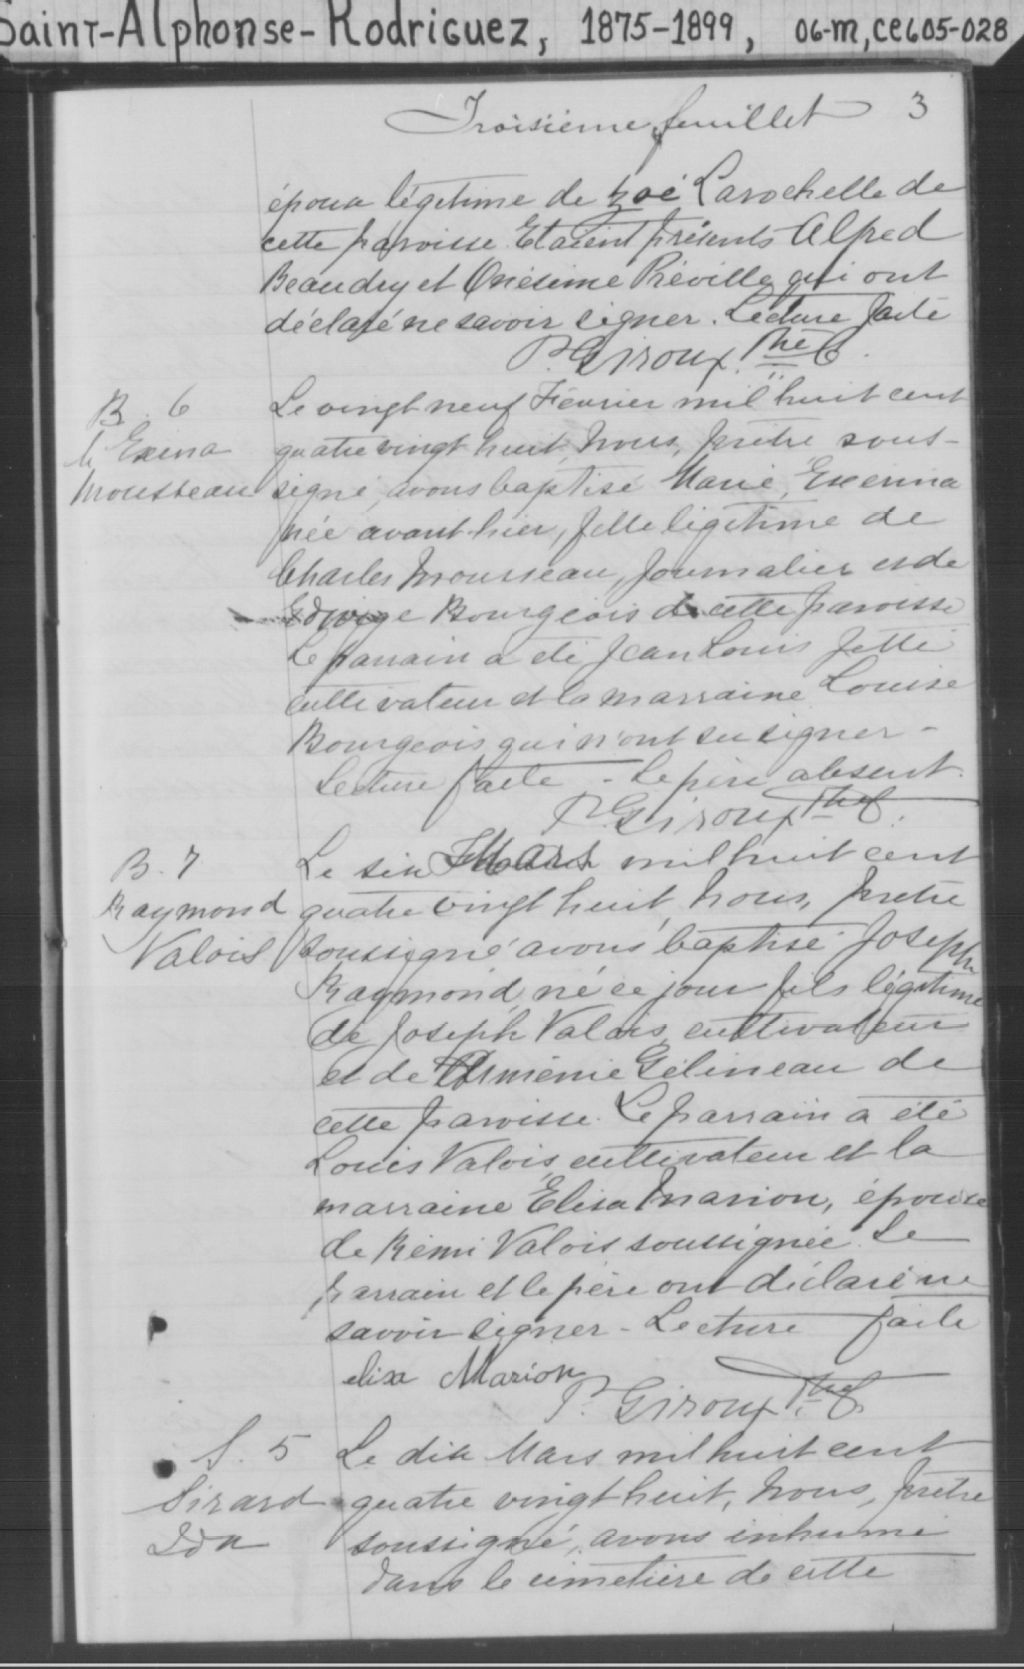 Saint-Alphonse-Rodriguez, 1875-1899, 06-M, CE605-028
Troisième feuillet 3
époux légitime de Zoé Larochelle de
cette paroisse. Etaient présents Alfred
Beaudry et Onésime Préville qui ont
déclaré ne savoir signer. Lecture faite
P. Giroux, Ptre
B. 6
M. Exina
Mousseau
Le vingt neuf Février mil huit cent
quatre vingt huit, Nous, prêtre sous-
signé, avons baptisé Marie, Exerina
née avant-hier, fille légitime de
Charles Mousseau, journalier et de
Edwige Bourgeois de cette paroisse
Le parrain a été Jean Louis Jetté
cultivateur et la marraine Louise
Bourgeois qui n'ont su signer -
Lecture faite - le père absent.
P. Giroux Ptre
B. 7
Raymond
Valois
Le six Mars mil huit cent
quatre vingt huit, Nous, prêtre
soussigné avons baptisé Joseph
Raymond, né ce jour fils légitime
de Joseph Valois, cultivateur
et de Arménie Gélineau de
cette paroisse. Le parrain a été
Louis Valois, cultivateur et la
marraine Élisa Marion, épouse
de Rémi Valois soussignée. Le
parrain et le père ont déclaré ne
savoir signer - Lecture faite
elixa Marion
P. Giroux Ptre
S. 5
Sirard
Ida
Le dix Mars mil huit cent
quatre vingt huit, Nous, prêtre
soussigné, avons inhumé
dans le cimetière de cette